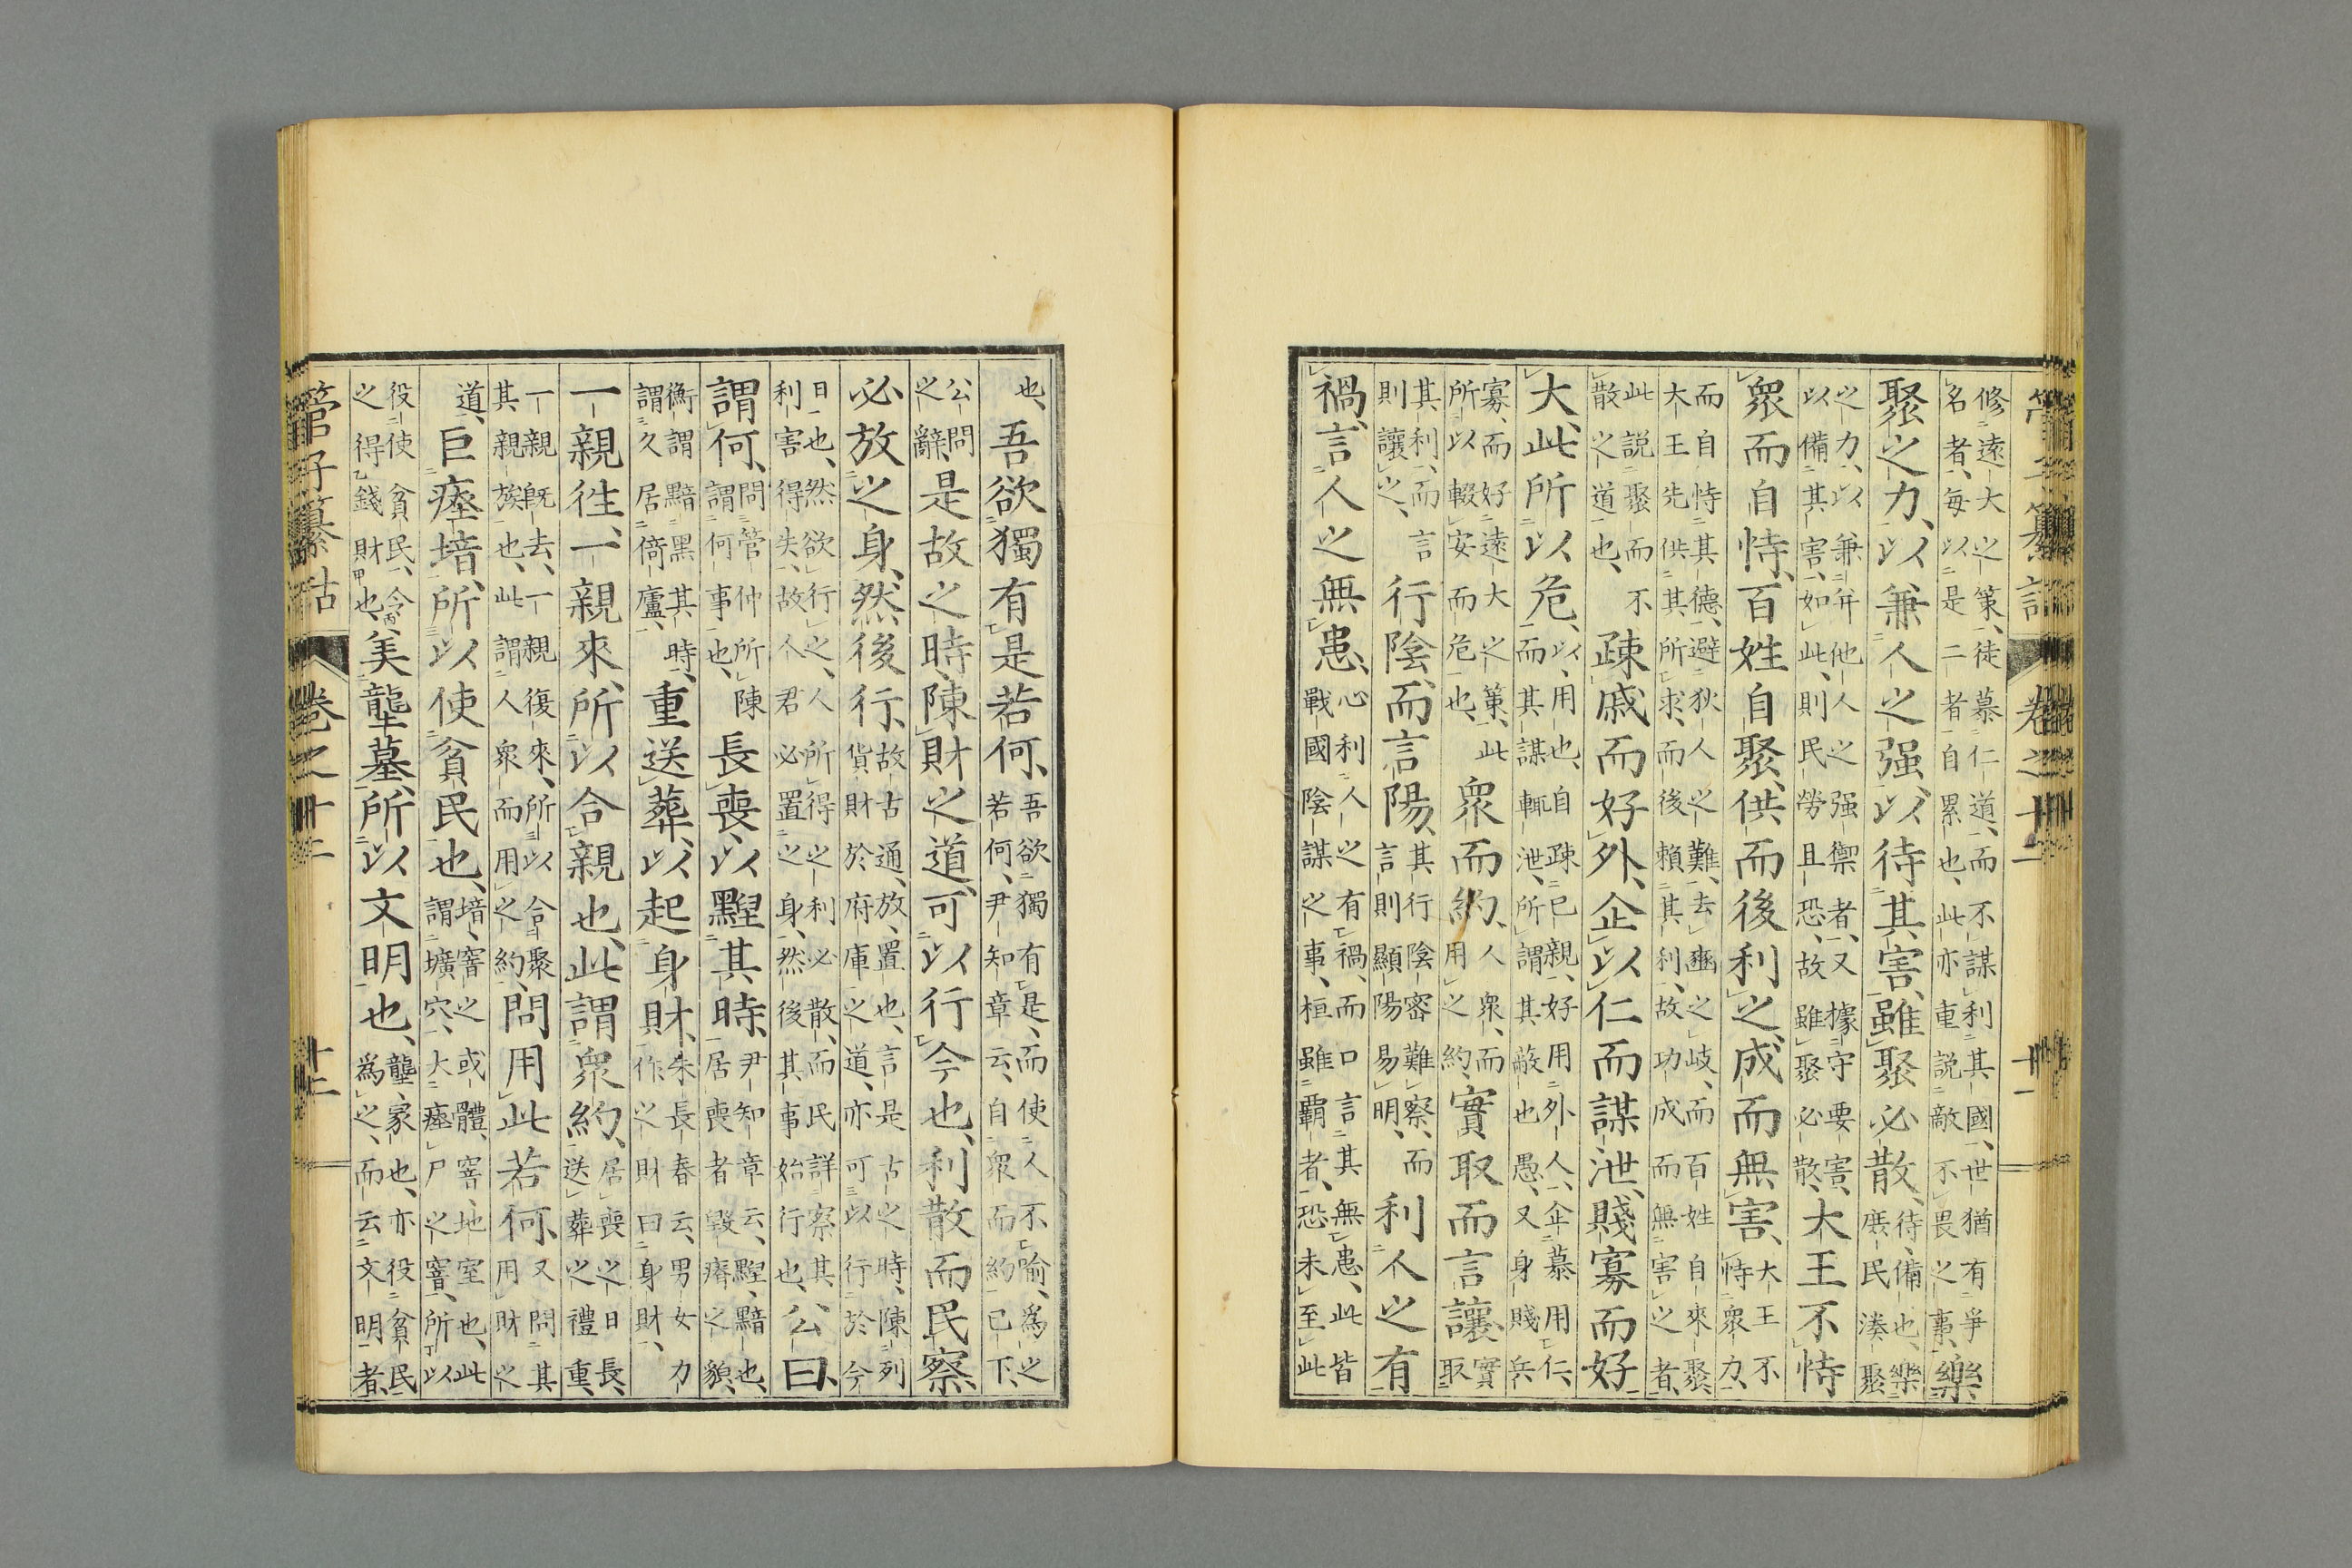 卷之十二 十一
修遠大之策、徒慕仁道、而不謀利其國、世猶有爭
名者、每以是二者自累也、此亦重説敵不畏之事、
樂
聚之力、以兼人之强、以待其害、雖聚必散、
待、備也、樂
庶民湊聚
之力、以兼幷他人之强禦者、又據守要害、
以備其害、如此、則民勞且恐、故雖聚必散、
大王不恃
衆而自恃、百姓自聚、供而後利之、成而無害、
大王不
恃衆力、
而自恃其德、避狄人之難、去豳之岐、而百姓自來聚、
大王先供其所求、而後賴其利、故功成而無害之者、
此説聚而不
散之道也、
疎戚而好外、企以仁而謀泄、賤寡而好
大、此所以危、
以、用也、自疎已親、好用外人、企慕用仁、
而其謀輒泄、所謂其蔽也愚、又身賤兵
寡、而好遠大之策、此
所以輟安而危也、
衆而約、
人衆、而
用之約、
實取而言讓、
實
取
其利、而言
則讓之、
行陰、而言陽、
其行陰密難察、而
言則顯陽易明、
利人之有
禍、言人之無患、
心利人之有禍、而口言其無患、此皆
戰國陰謀之事、桓雖霸者、恐未至此
也、
吾欲獨有是若何、
吾欲獨有是、而使人不喻、爲之
若何、尹知章云、自衆而約已下、
公問
之辭、
是故之時、陳財之道、可以行、今也、利散而民察、
必放之身、然後行、
故古通、放、置也、言是古之時、陳列
貨財於府庫之道、亦可以行於今
日也、然欲行之、人所得之利必散、而民詳察其
利害得失、故人君必置之身、然後其事始行也、
公曰、
謂何、
問管仲所陳
謂何事也、
長喪、以其時、
尹知章云、黯也、
居喪者毀瘠之貌、
衡謂黯黑其時、
謂久居倚廬、
重送葬、以起身財、
朱長春云、男女力
作之財曰身財、
一親往、一親來、所以合親也、此謂衆約、
居喪之日長、
送葬之禮重、
一親既去、一親復來、所以合聚
其親族也、此謂人衆而用之約、
問用此若何、
又問其
用財之
道、
巨瘞堷、所以使貧民也、
堷、窨之或體、窨、地室也、此
謂壙穴、大瘞尸之窨、所以
役使貧民、令
之得錢財也、
美壟墓、所以文明也、
壟、冢也、亦役貧民
爲之、而云文明者、
管子纂詁 卷之十二 十二